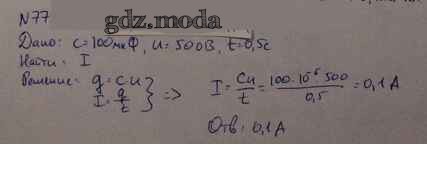 N77
gdz.moda
Дано: c=100мкФ, u=500В, t=0,5с
Найти: I
Решение: q=cu
I=q/t } => I = cu/t = 100·10⁻⁶·500/0,5 = 0,1 A
Отв: 0,1 A